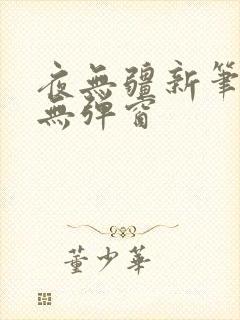 夜無疆新筆
無彈窗
董少華